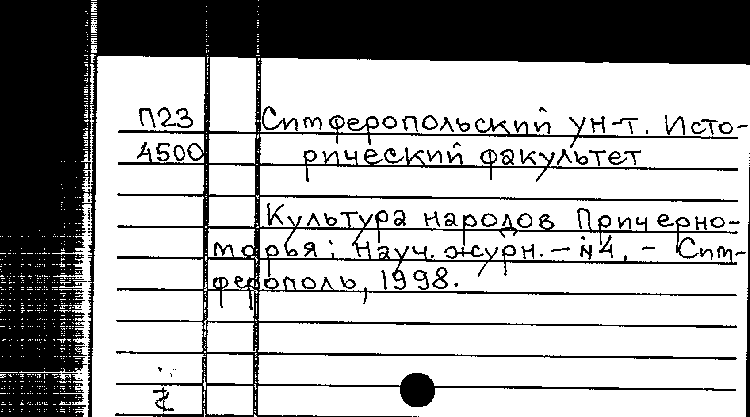 П23 Симферопольский ун-т. Исто-
4500 рический факультет
Культура народов Причерно-
морья: Науч. журн. – №4. – Сим-
ферополь, 1998.